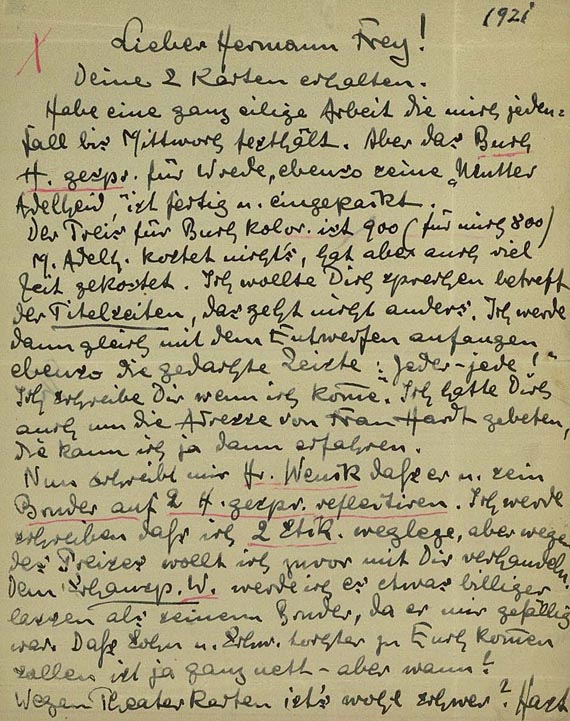 1921
Lieber Hermann Frey!
Deine 2 Karten erhalten.
Habe eine ganz eilige Arbeit die mich jeden=
fall bis Mittwoch festhält. Aber das Buch
H. gespr. für Wrede, ebenso seine "Mutter
Adelheid," ist fertig u. eingepackt.
Der Preis für Buch kolor. ist 900 (für mich 800)
M. Adelh. kostet nicht's, hat aber auch viel
Zeit gekostet. Ich wollte Dich sprechen betreff
der Titelzeiten, das geht nicht anders. Ich werde
dann gleich mit dem Entwerfen anfangen
ebenso die gedachte Leiste: "Jeder-jede!"
Ich schreibe Dir wenn ich kom̄e. Ich hatte Dich
auch um die Adresse von Frau Hardt gebeten,
die kann ich ja dann erfahren.
Nun schreibt mir Hr. Wenk dass er u. sein
Bruder auf 2 H. gespr. reflectiren. Ich werde
schreiben dass ich 2 Stk. weglege, aber wegen
des Preises wollt ich zuvor mit Dir verhandeln.
Dem Schausp. W. werde ich es etwas billiger
lassen als seinem Bruder, da er mir gefällig
war. Dass Sohn u. Schw. tochter zu Euch kom̄en
sollen ist ja ganz nett - aber wann?
Wegen Theaterkarten ist's wohl schwer?